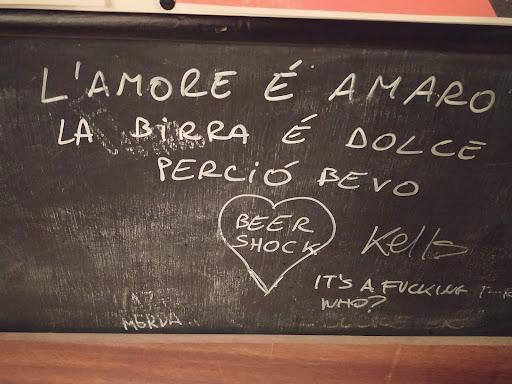 L'AMORE É AMARO
LA BIRRA É DOLCE
PERCIÓ BEVO
BEER
SHOCK
Kells
IT'S A FUCKING
WHO?
MERDA